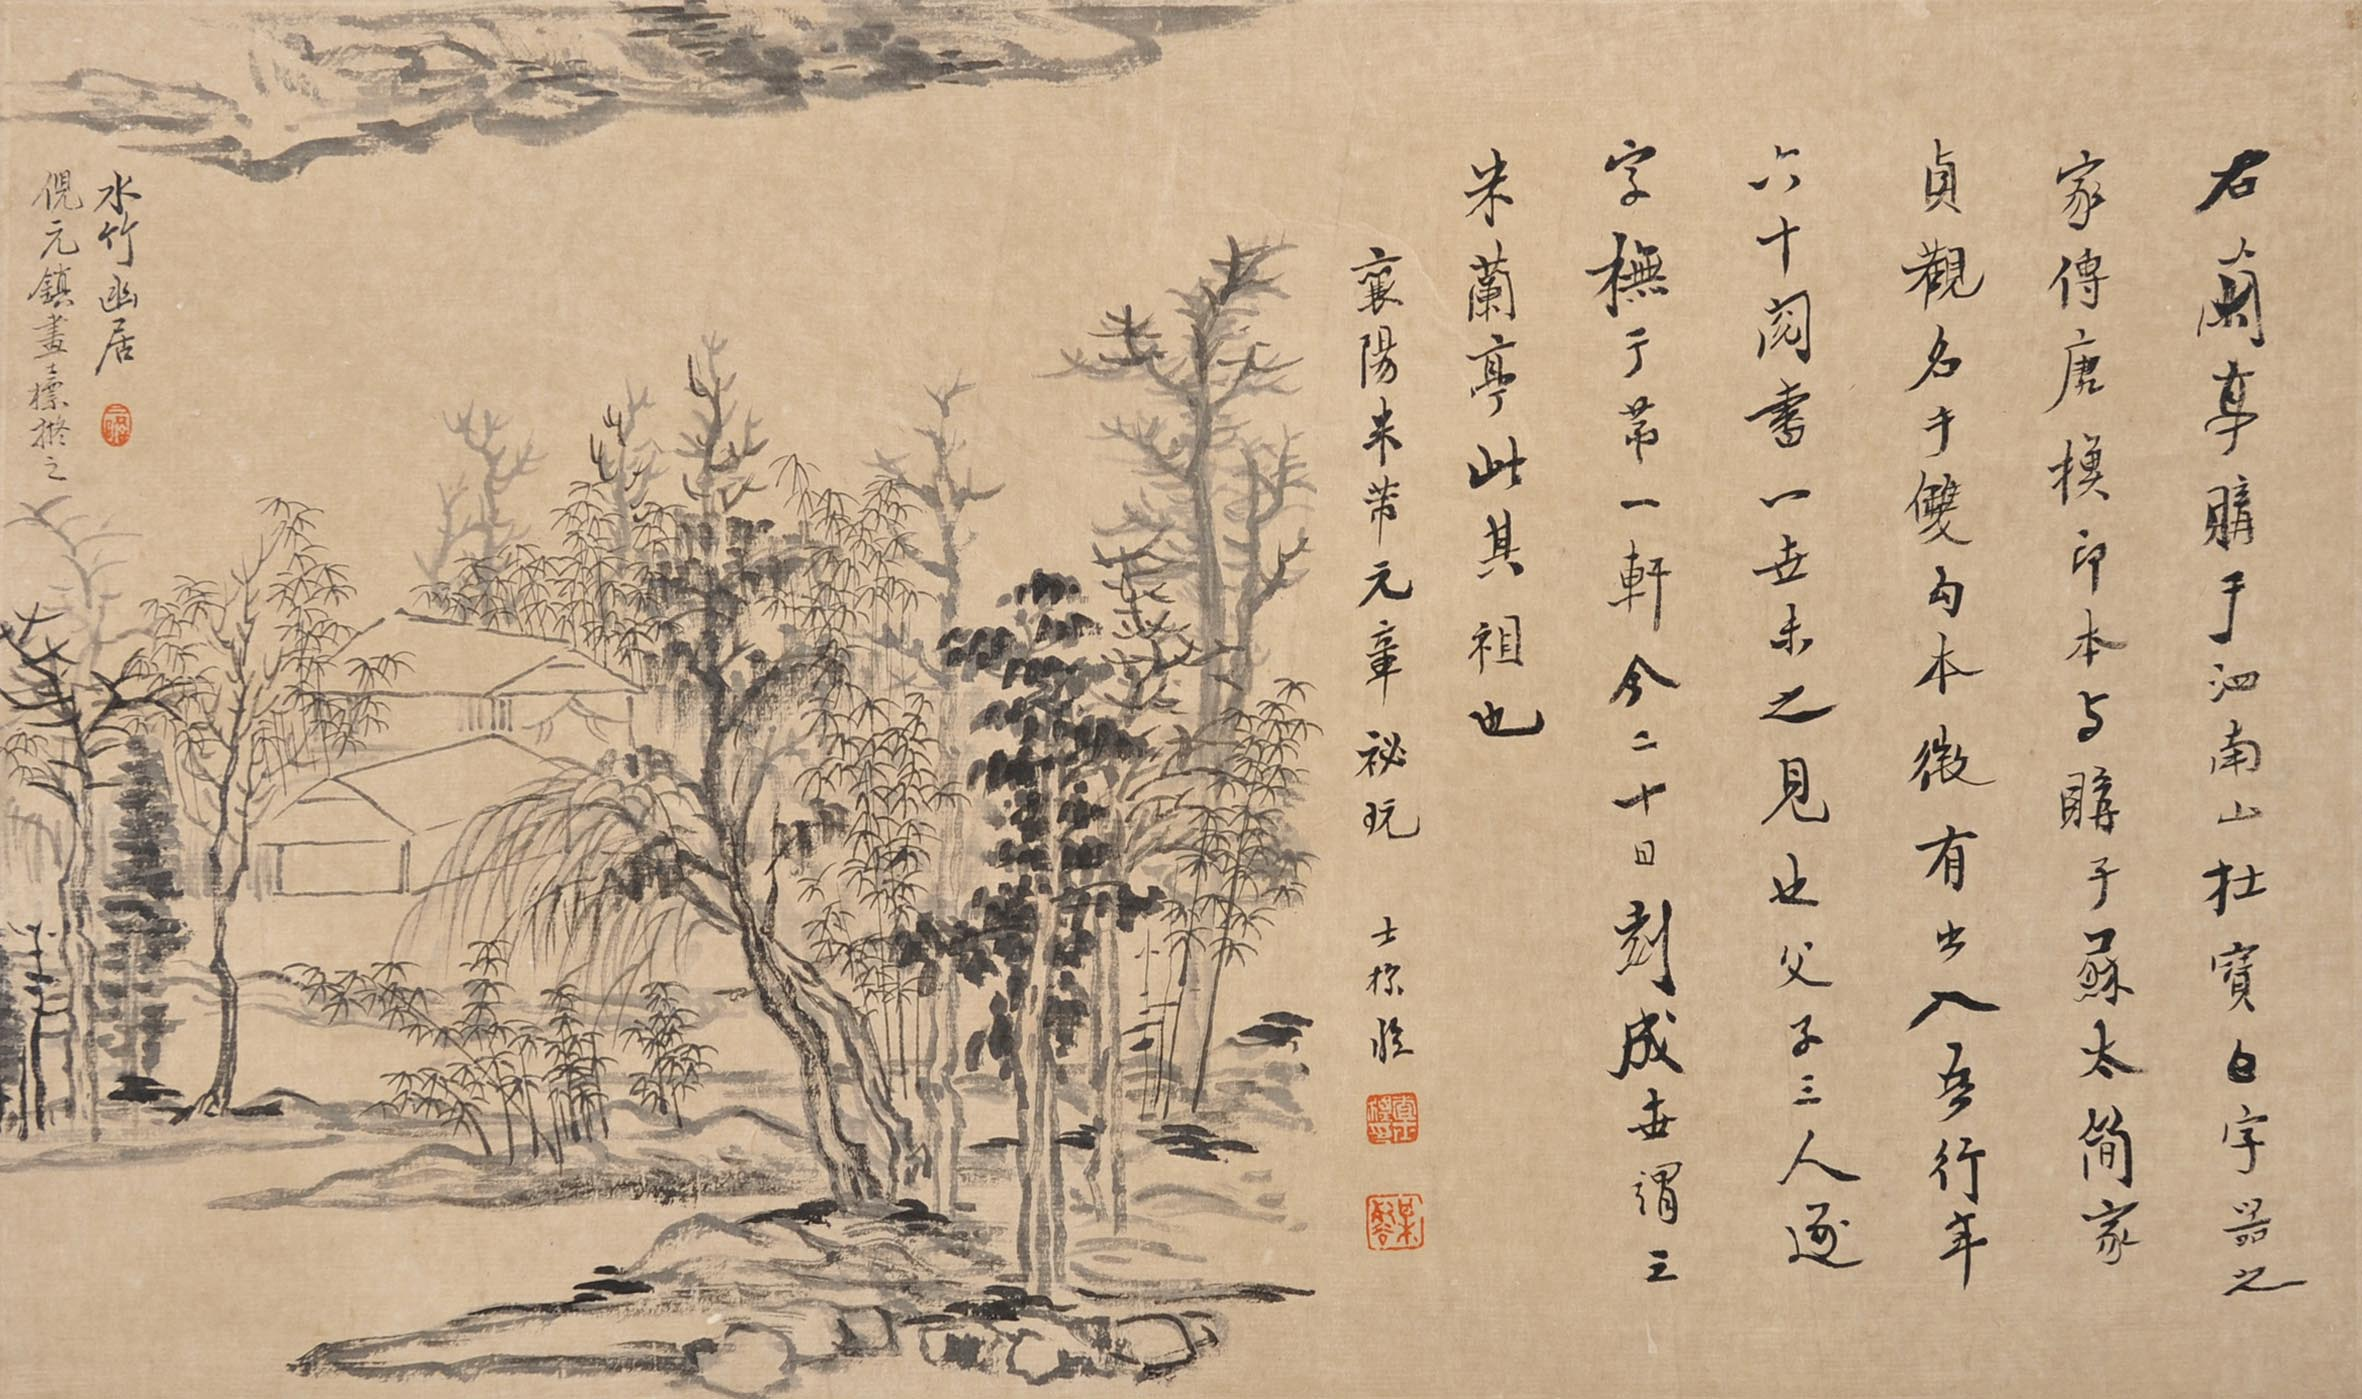 右蘭亭購于泗南山杜寶臣字器之
家傳唐模印本与購于蘇太簡家
貞觀名手雙勾本微有出入吾行年
六十閱書一世未之見也父子三人逐
字橅于芾一軒今二十日刻成世謂三
米蘭亭此其祖也
襄陽米芾元章祕玩 士標臨
水竹幽居
倪元鎮畫士標撫之